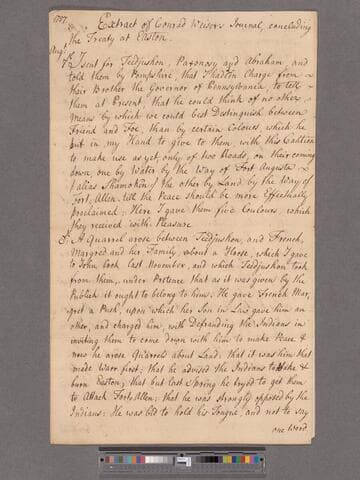 1757.
Extract of Conrad Weisers Journal, concluding
the Treaty at Easton.
Augt
7th I sent for Tedjuskon, Paxonosy and Abraham, and
told them by Pompshire, that I had in Charge from
their Brother the Governor of Pennsylvania to tell
them at Present, that he could think of no other
Means by which we could best Distinguish between
Friend and Foe, than by certain Colours, which he
put in my Hand to give to them, with this Caution
to make use as yet, only of two Roads, on their coming
down, one by Water by the Way of Fort Augusta
(alias Shamokin) the other by Land by the Way of
Fort Allen, till the Peace should be more Effectually
proclaimed: Here I gave them five Coulours, which
they received with Pleasure
8th A Quarrel arose between Tedjuskon, and French,
Margred and her Family, about a Horse, which I gave
to John Cook last November, and which Tedjuskon took
from them, under Pretence that as it was given by the
Publick it ought to belong to him: He gave French Mar,
gret a Push, upon which her Son in Law gave him an
other, and charged him, with Defrauding the Indians in
inviting them to come down with him to make Peace &
now he arose Quarrels about Land; that it was him that
made War first; that he advised the Indians to take &
burn Easton; that but last Spring he tryed to get them
to Attack Fort Allen; that he was strongly opposed by the
Indians: He was bid to hold his Tongue, and not to say
one Word